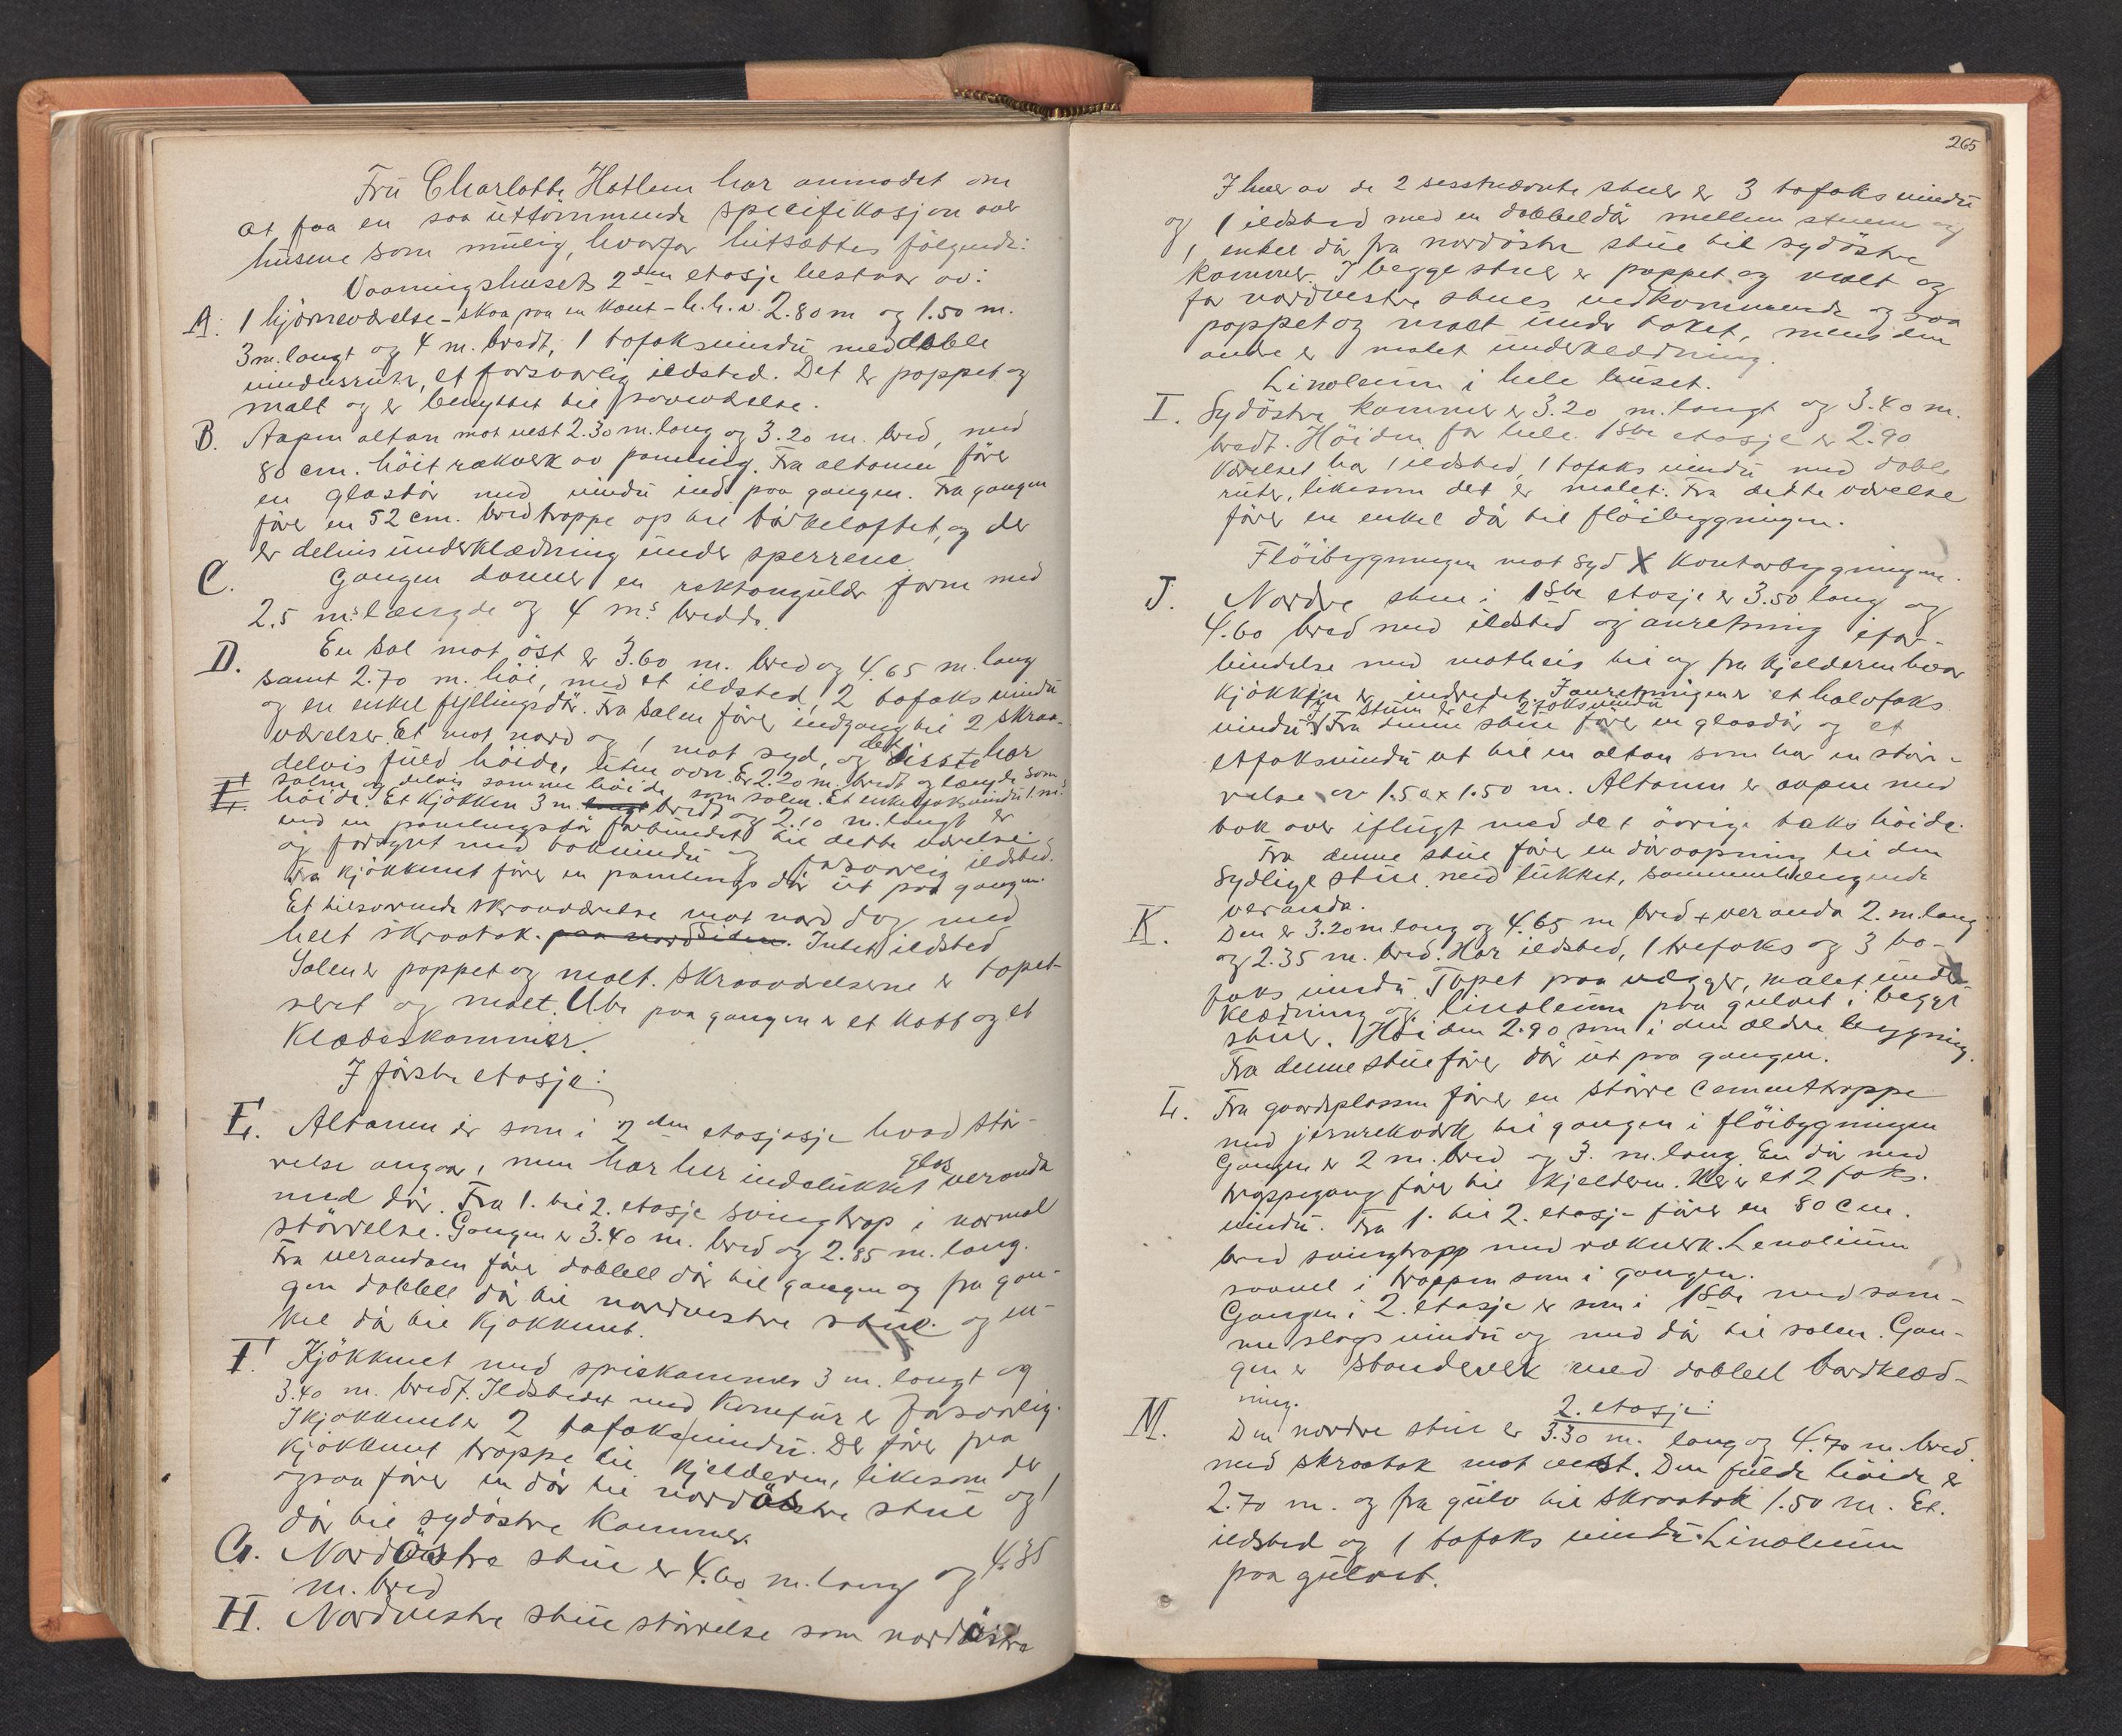 Fru Charlotte Hatlem har anmodet om
at faa en saa uttömmende specifikasjon over
husene som mulig, hvorfor hitsættes følgende:
Vaaningshusets 2den etasje bestaar av:
A. 1 hjörneværelse - skaa paa en kant - h.h.v. 2.80 m og 1.50 m.
3 m. langt og 4 m. bredt, 1 tofaksvindu med doble
vindusruter, et forsvarlig ildsted. Det er pappet og
malt og er benyttet til soveværelse.
B. Aapen altan mot vest 2.30 m. lang og 3.20 m. bred, med
80 cm. höit rækverk av panning. Fra altanen förer
en glasdör med vindu ind paa gangen. Fra gangen
förer en 52 cm. bred trappe op til törkeloftet, og der
er delvis underklædning under sperrene.
C. Gangen danner en rektangulær form med
2.5 m.s længde og 4 m.s bredde.
D. En sal mot öst er 3.60 m. bred og 4.65 m. lang
samt 2.70 m. höi, med et ildsted, 2 tofaks vindu
og en enkel fyllingsdör. Fra salen förer indgang til 2 skraa-
værelser. Et mot nord og 1 mot syd, og det sisste har
delvis fuld höide, uten ovn. Er 2.20 m. bredt og længde som
salen og delvis samme höide som salen. Et enkeltfaksvindu 1. m.s
höide. Et kjökken 3 m. langt bredt og 2.10 m. langt er
ved en panelingsdör forbundet til dette værelse
og forsynt med takvindu og forsvarlig ildsted.
Fra kjökkenet förer en panelings dör ut paa gangen.
Et tilsvarende skraaværelse mot nord dog med
helt skraatak. paa nordsiden. Intet ildsted
Salen er pappet og malt. Skraaværelserne er tapet-
seret og malt. Ute paa gangen er et kott og et
Klædeskammer.
I förste etasje:
E. Altanen er som i 2den etasjasje hvad stör-
relse angaar, men har her indelukket glas veranda
med dör. Fra 1. til 2. etasje svingtrap i normal
störrelse. Gangen er 3.40 m. bred og 2.85 m. lang.
Fra verandaen förer dobbelt dör til gangen og fra gan-
gen dobbelt dör til nordvestre stue og en-
kel dör til kjökkenet.
F. Kjökkenet med spiskammer 3 m. langt og
3.40 m. bredt. Ildstedet med komfur er forsvarlig.
I kjökkenet er 2 tofaksvindu. Der förer fra
kjökkenet trappe til kjelderen, likesom der
ogsaa förer en dör til nordöstre stue og 1
dör til sydöstre kammer.
G. Nordöstre stue er 4.60 m. lang og 4.35
m. bred
H. Nordvestre stue störrelse som nordöstre
265
I hver av de 2 sisstnævnte stuer er 3 tofaks vindu
og 1 ildsted med en dobbeldör mellem stuene og
1 enkel dör fra nordöstre stue til sydöstre
kammer. I begge stuer er pappet og malt og
for nordvestre stues vedkommende og saa
pappet og malt under taket, mens den
andre er malet underklædning.
Linoleum i hele huset.
I. Sydöstre kammer er 3.20 m. langt og 3.40 m.
bredt. Höiden for hele 1ste etasje er 2.90
Værelset har 1 ildsted, 1 tofaks vindu med doble
ruter, likesom det er malet. Fra dette værelse
förer en enkel dör til flöibygningen.
Flöibygningen mot syd X Kontorbygningen.
J. Nordre stue i 1ste etasje er 3.50 lang og
4.60 bred med ildsted og anretning i for-
bindelse med matheis til og fra kjelderen hvor
kjökken er indredet. I anretningen er et halvfaks
I stuen er et 2faksvindu
vindu. Fra denne stue förer en glasdör og et
etfaksvindu ut til en altan som har en stör-
relse av 1.50 x 1.50 m. Altanen er aapen med
tak over iflugt med det övrige taks höide.
Fra denne stue förer en döraapning til den
sydlige stue med lukket, sammenhængende
veranda.
K. Den er 3.20 m lang og 4.65 m bred + veranda 2. m. lang
og 2.35 m. bred. Har ildsted, 1 trefaks og 3 to-
faks vindu. Tapet paa vægger, malet under-
klædning og linoleum paa gulvet i begge
stuer. Höiden 2.90 som i den ældre bygning.
Fra denne stue förer dör ut paa gangen.
L. Fra gaardsplassen förer en större cementtrappe
med jernrekverk til gangen i flöibygningen
Gangen er 2 m. bred og 3. m. lang. En dör med
trappegang förer til kjelderen. Her er et 2 faks.
vindu. Fra 1. til 2. etasje förer en 80 cm.
bred svingtrapp med rækverk. Lenoleum
saavel i trappen som i gangen.
Gangen i 2. etasje er som i 1ste med sam-
me slags vindu og med dör til salen. Gan-
gen er standerverk med dobbelt bordklæd-
ning.
2. etasje:
M. Den nordre stue er 3.30 m. lang og 4.70 m. bred.
med skraatak mot vest. Den fulde höide er
2.70 m. og fra gulv til skraatak 1.50 m. Et.
ildsted og 1 tofaks vindu. Linoleum
paa gulvet.